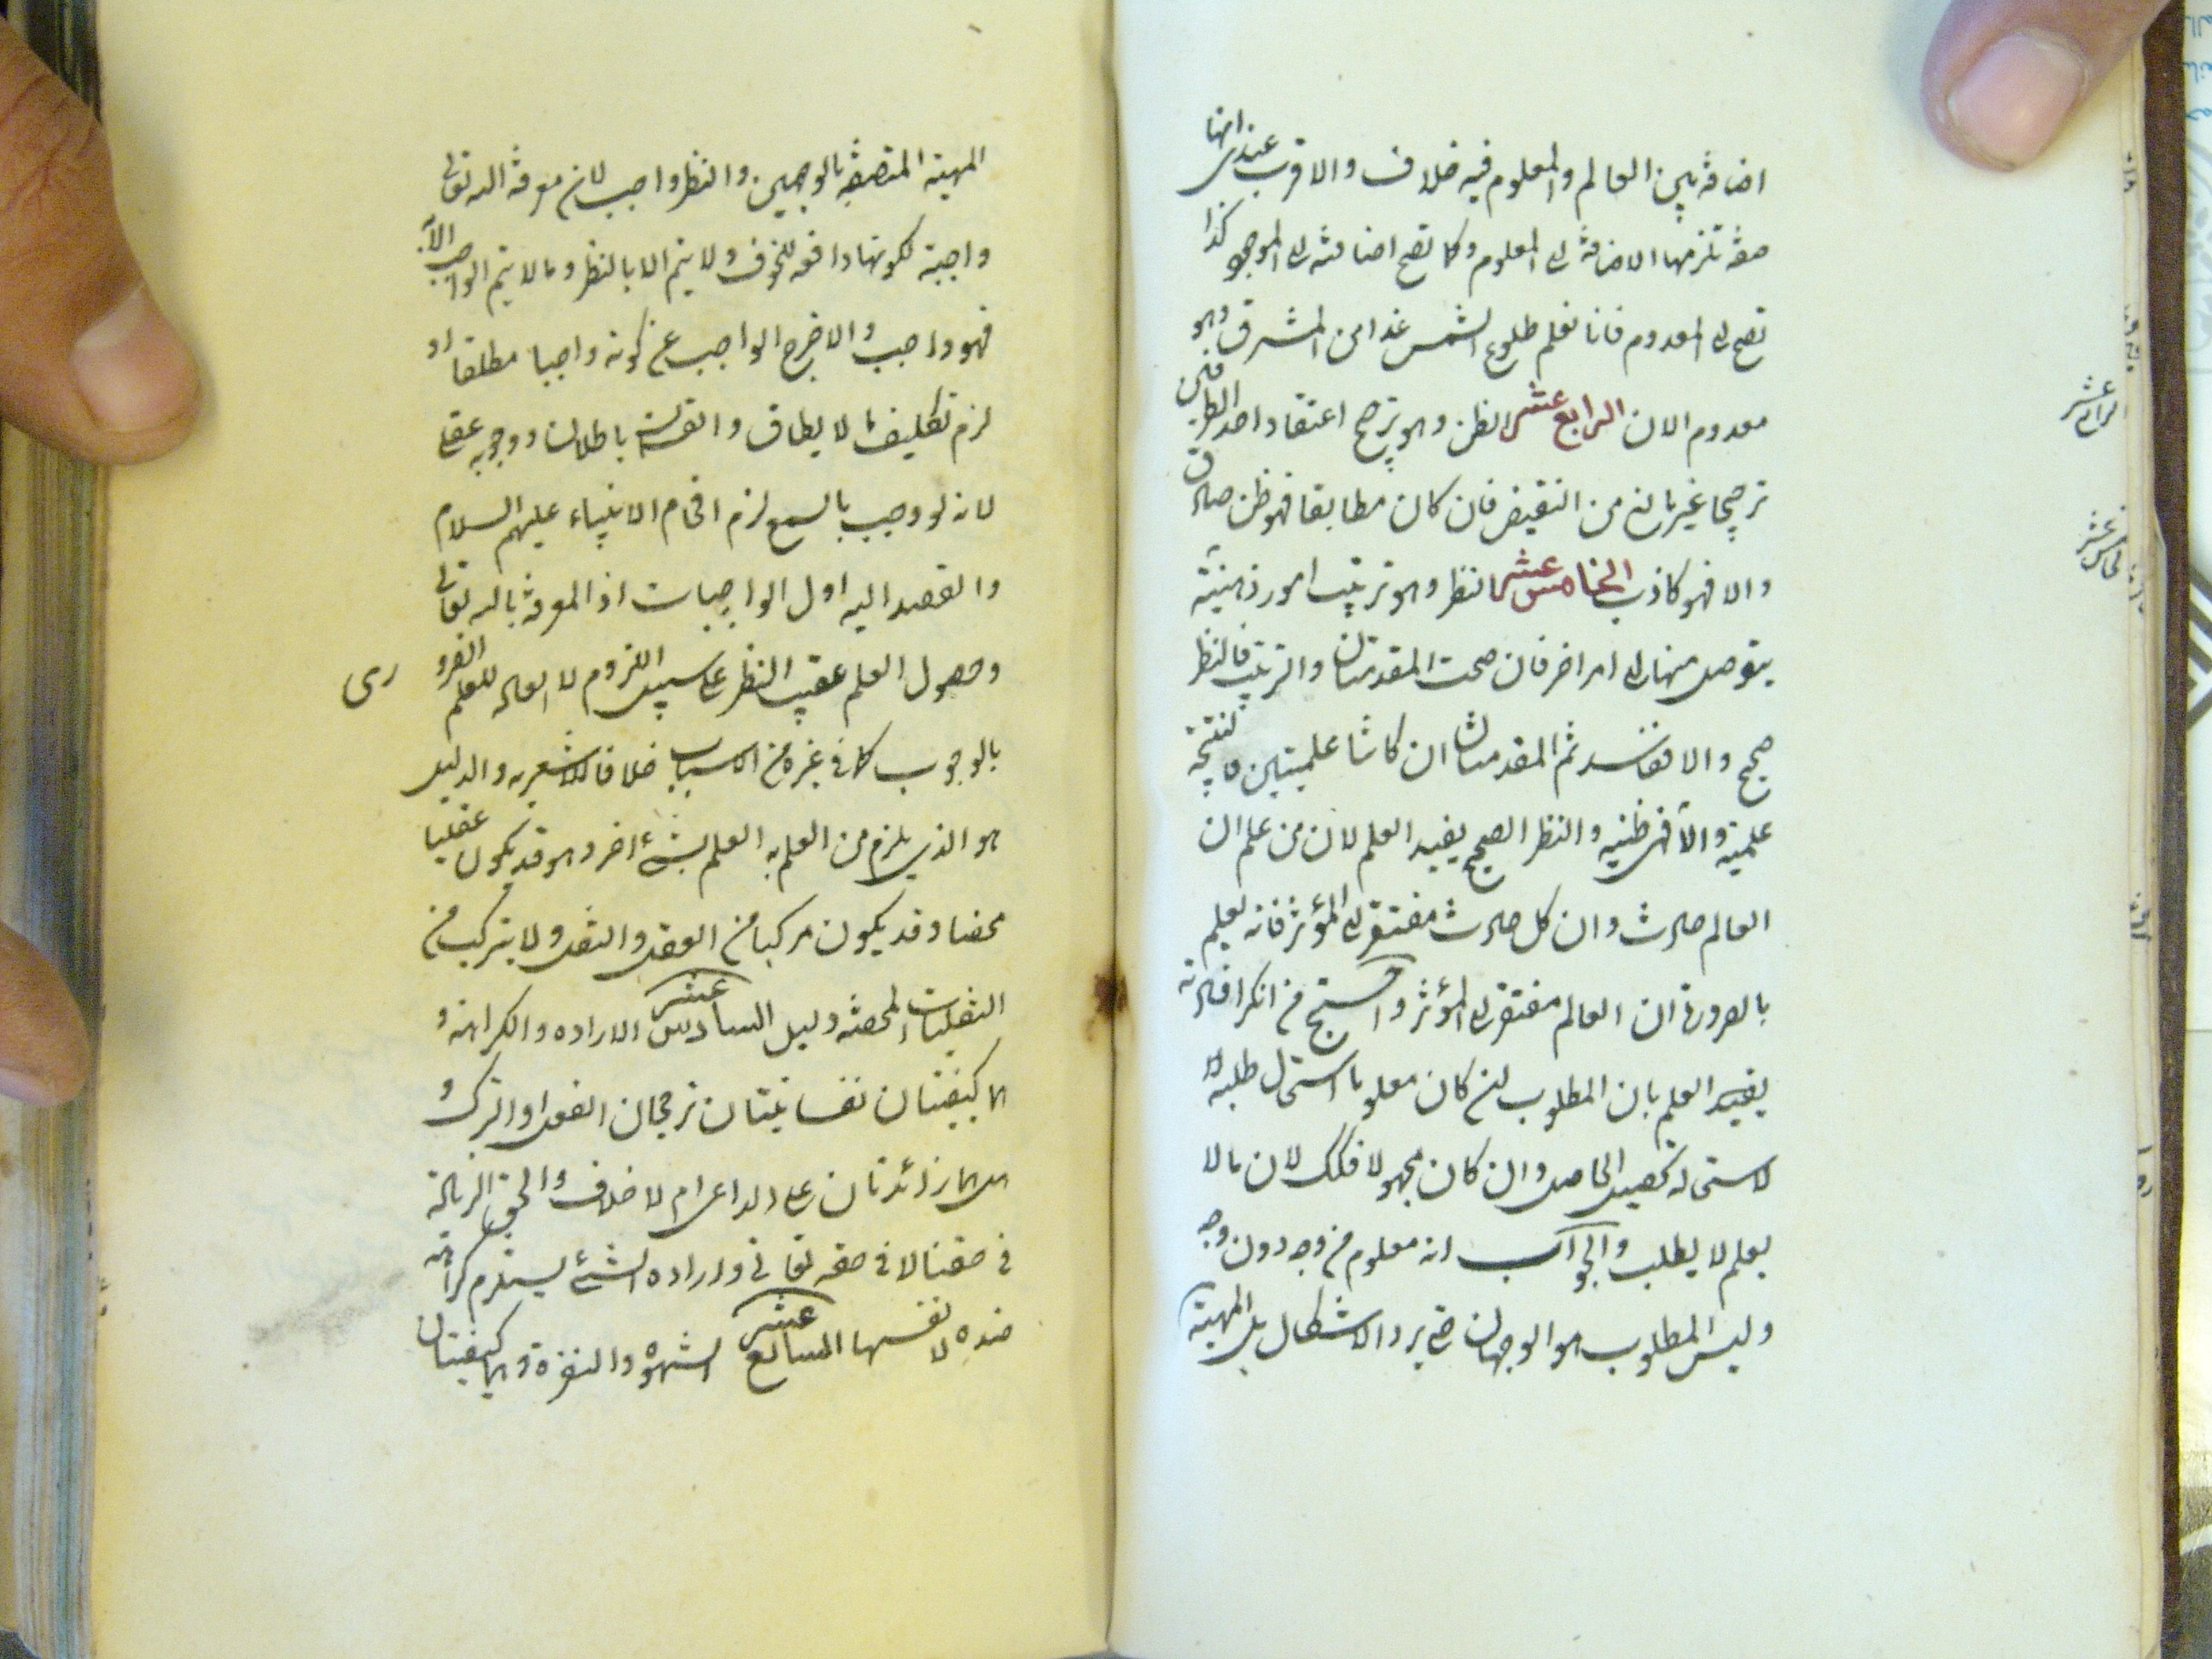 اضافة بين العالم والمعلوم فيه خلاف والاقرب عندى انها
صفة تلزمها الاضافة الى المعلوم وكما تصح اضافته الى الموجود كذا
تصح الى المعدوم فانا نعلم طلوع الشمس غدا من المشرق وهو
معدوم الان الرابع عشر الظن وهو ترجيح اعتقاد احد الطرفين
ترجيحا غير مانع من النقيض فان كان مطابقا فهو ظن صادق
والا فهو كاذب الخامس عشر النظر وهو ترتيب امور ذهنية
يتوصل منها الى امر اخر فان صحت المقدمتان والترتيب فالنظر
صحيح والا ففاسد ثم المقدمتان ان كانتا علميتين فالنتيجة
علمية والا فهى ظنيه والنظر الصحيح يفيد العلم لان من علم ان
العالم حادث وان كل حادث مفتقر الى المؤثر فانه يعلم
بالضرورة ان العالم مفتقر الى المؤثر واحتج من انكر افادته
يفيد العلم بان المطلوب ان كان معلوما استحال طلبه
لاستحالة تحصيل الحاصل وان كان مجهولا فكذلك لان ما لا
يعلم لا يطلب والجواب انه معلوم من وجه دون وجه
وليس المطلوب هو الوجهان حتى يرد الاشكال بل المهية
رابع عشر
خامس عشر
المهية المتصفة بالوجهين والنظر واجب لان معرفة الله تعالى
واجبة لكونها دافعه للخوف ولا يتم الا بالنظر وما لا يتم الواجب الا به
فهو واجب والا خرج الواجب عن كونه واجبا مطلقا او
لزم تكليف ما لا يطاق والقسمان باطلان ووجوبه عقلى
لانه لو وجب بالسمع لزم افحام الانبياء عليهم السلام
والقصد اليه اول الواجبات اذ المعرفة بالله تعالى
وحصول العلم عقيب النظر على سبيل اللزوم لا العادة للعلم الضرو
رى
بالوجوب كما فى غيره من الاسباب خلافا للاشعريه والدليل
هو الذي يلزم من العلم به العلم بشئ اخر وهو قد يكون عقليا
محضا وقد يكون مركبا من العقل والنقل ولا يتركب من
النقليات المحضة دليل السادس عشر الاراده والكراهة و
هما كيفيتان نفسانيتان ترجحان الفعل او الترك و
هل هما زائدتان على الداعى ام لا خلاف والحق الزيادة
فى حقنا لا فى حقه تعالى وارادة الشئ يستلزم كراهة
ضده لا نفسها السابع عشر الشهوة والنفرة وهما كيفيتان